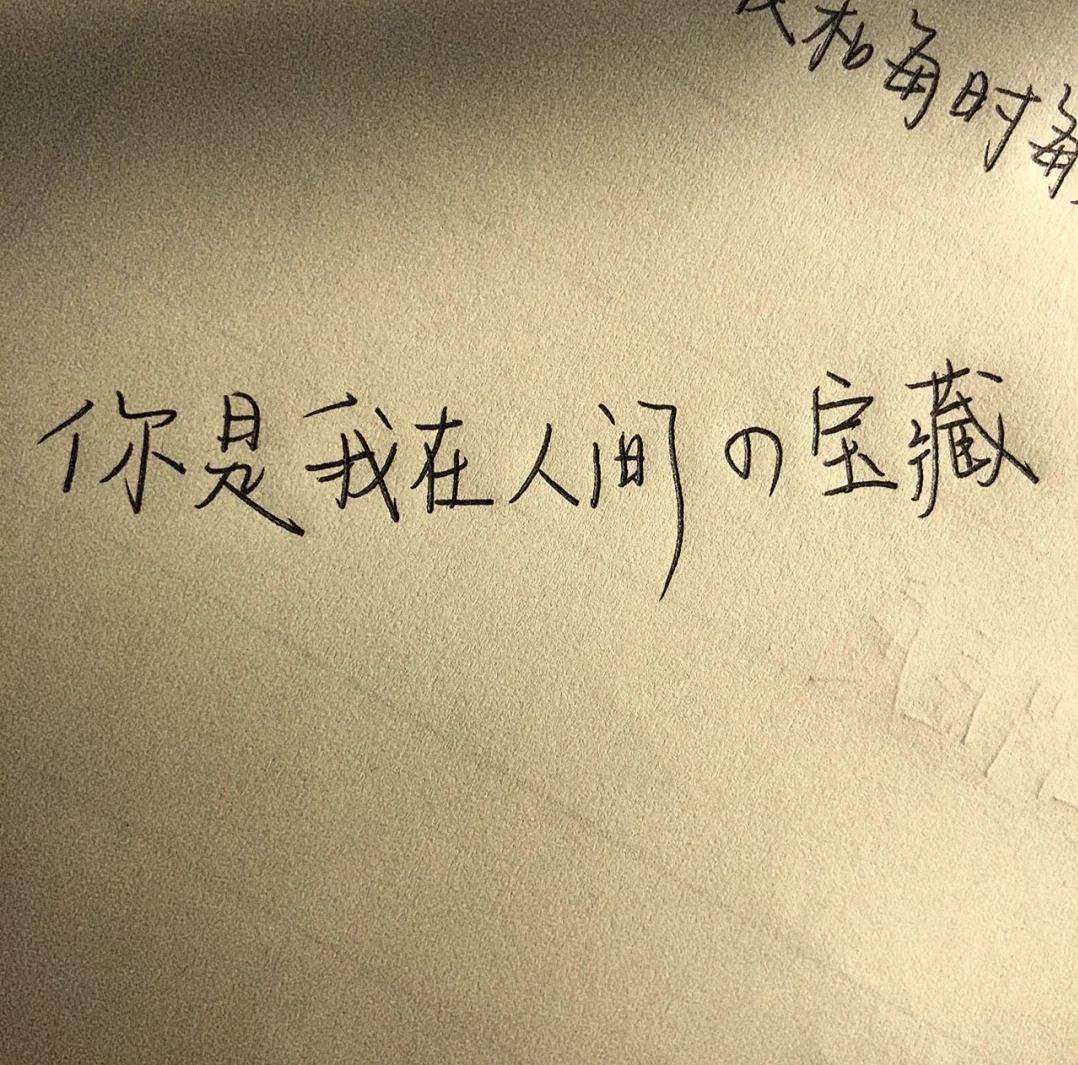 每时每
你是我在人间の宝藏